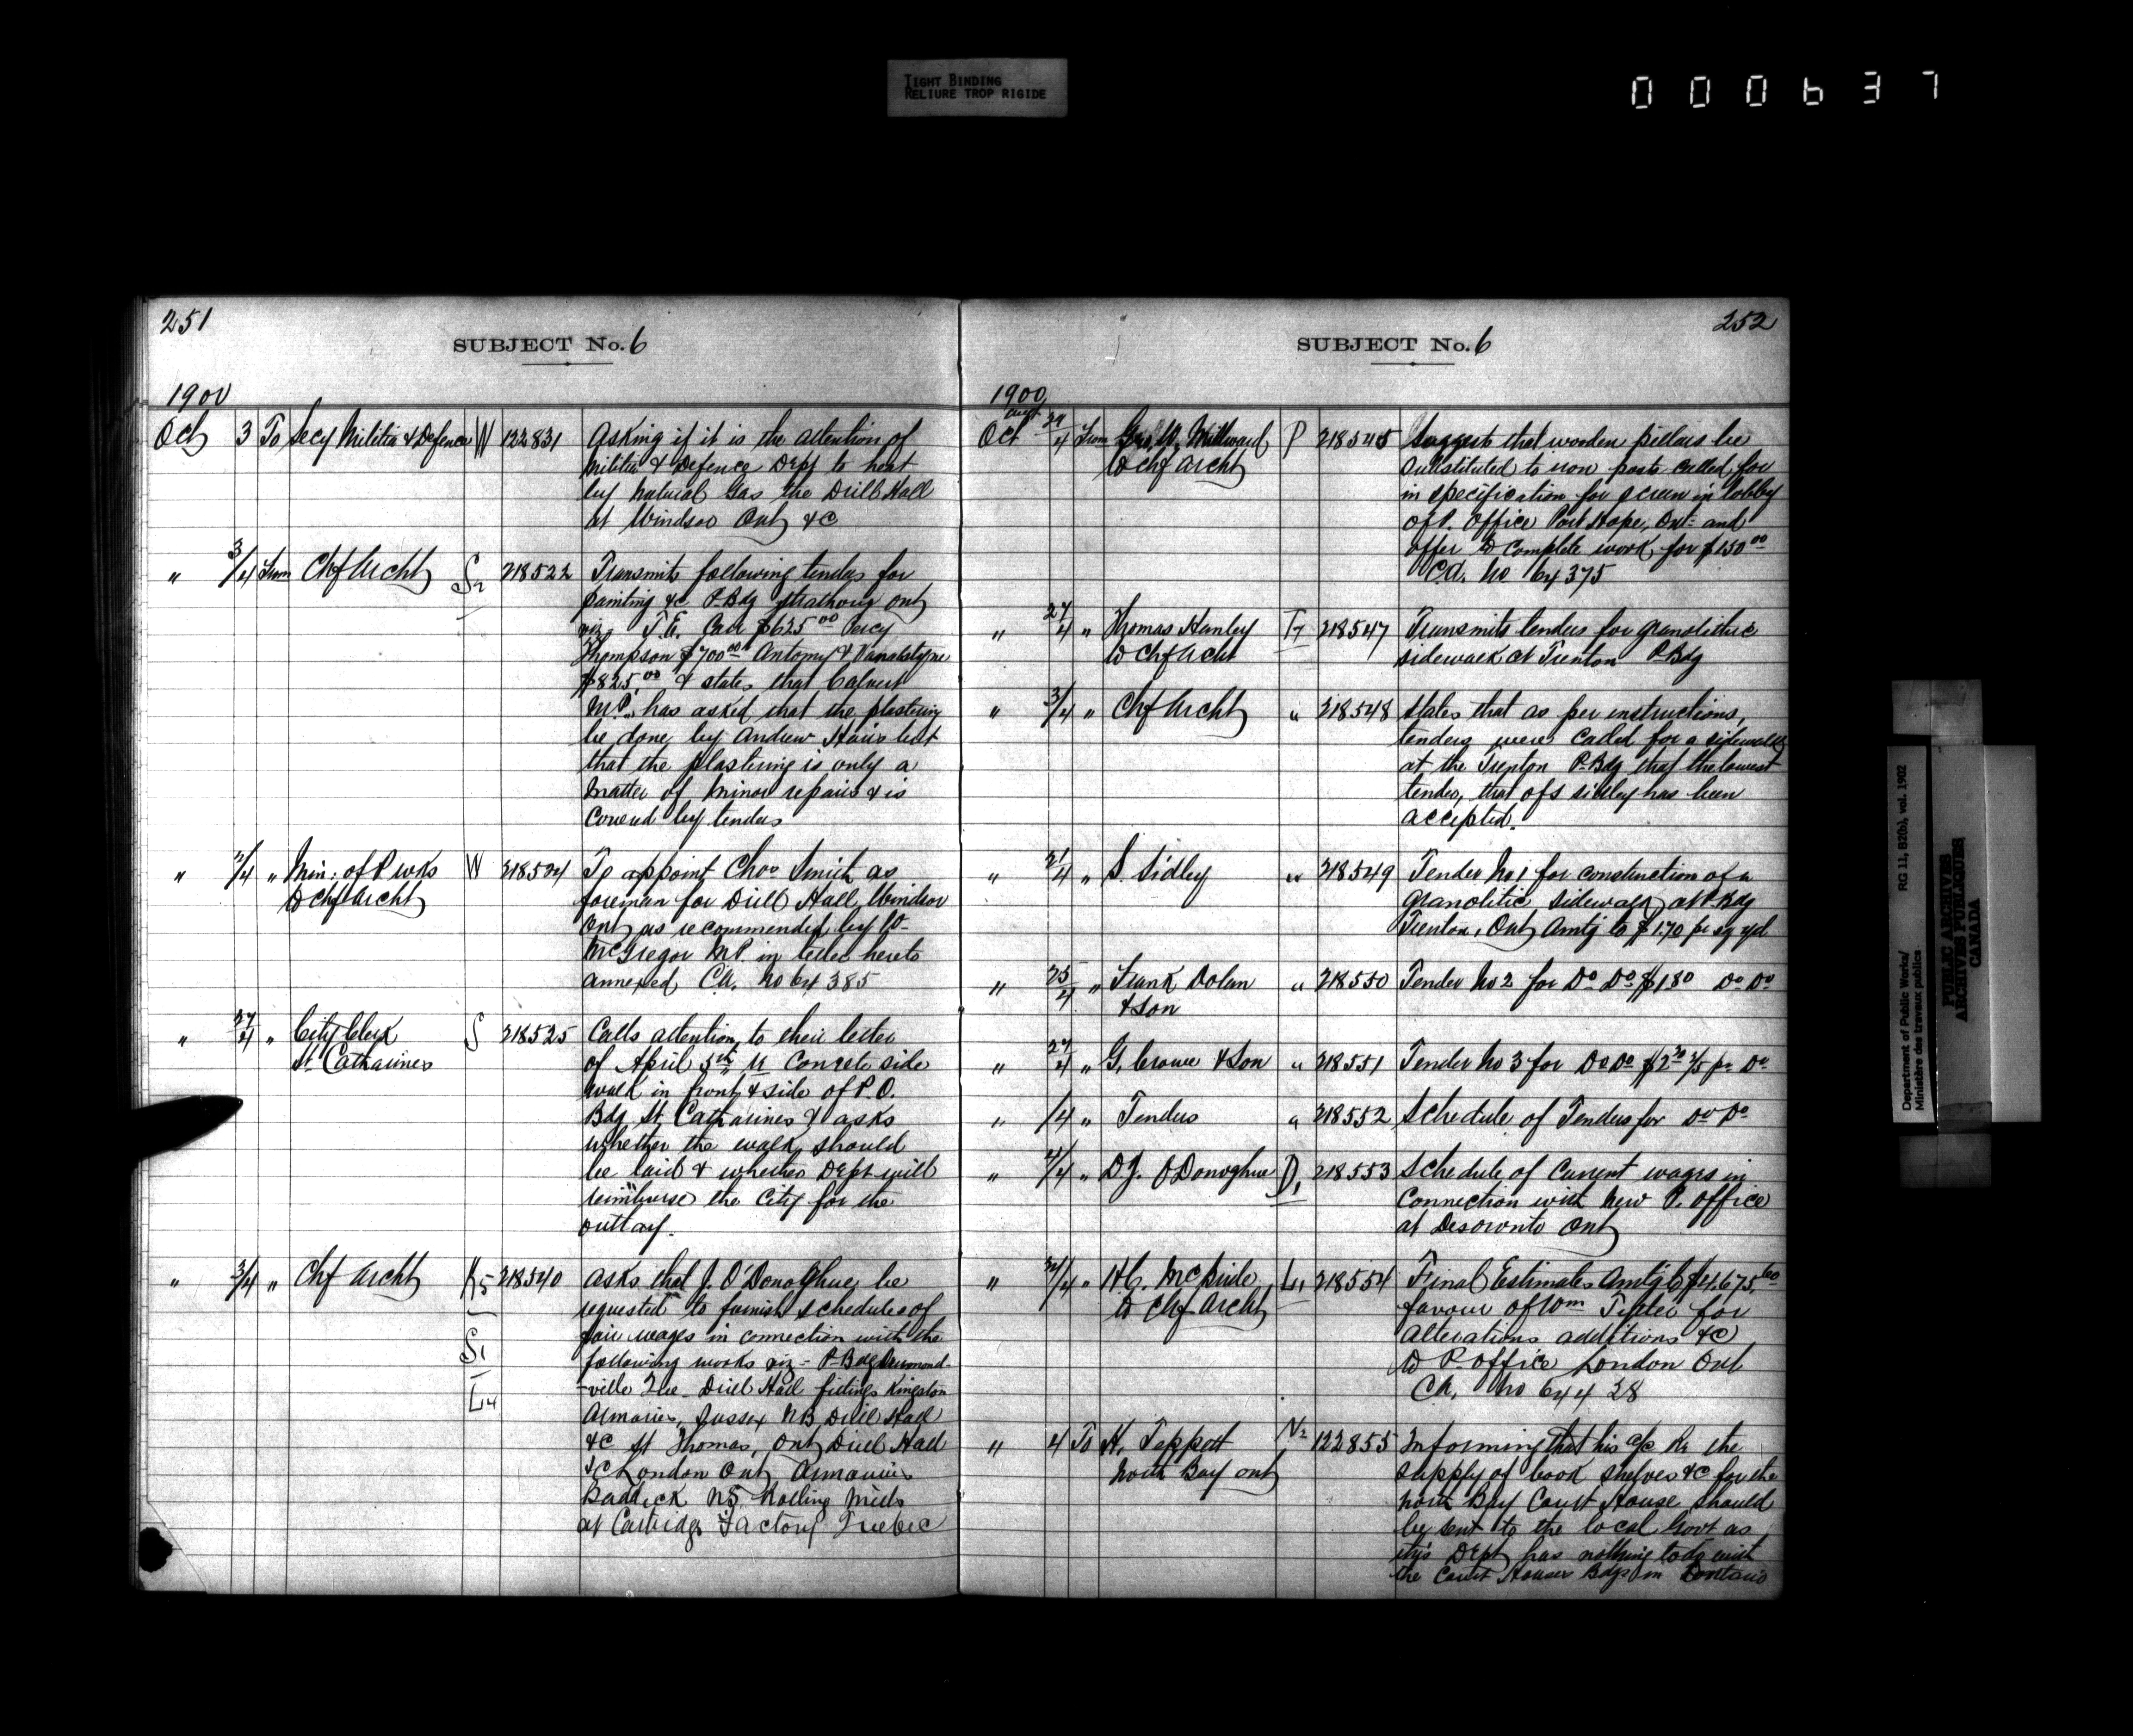 TIGHT BINDING
RELIURE TROP RIGIDE
000637
251
SUBJECT No. 6
1900
Oct 3 To Secy Militia & Defence W 122831 Asking if it is the attention of
Militia & Defence Dept to heat
by Natural Gas the Drill Hall
at Windsor Ont &c
" 3/4 From Chf Archt S2 218522 Transmits following tenders for
painting &c P. Bdg Strathroy Ont
viz T.E. Carr $625.00 Percy
Thompson $700.00 Antomy & Vanalstyne
$825.00 & states that Calvert
M.P. has asked that the plastering
be done by Andrew but
that the plastering is only a
Matter of minor repairs & is
Covered by tenders
" 2/4 " Min: of P. Wks W 218524 To appoint Chas Smith as
to Chf Archt foreman for Drill Hall, Windsor
Ont, as recommended by W-
McGregor M.P. in letter hereto
annexed C.A. No 64385
" 27/4 " City Clerk S 218525 Calls attention to their letter
St. Catharines of April 5th re Concrete side
walk in front & side of P.O.
Bdg St. Catharines & asks
whether the walk should
be laid & whether Dept will
reimburse the City for the
outlay.
" 3/4 " Chf Archt K5 218540 Asks that J. O'Donoghue be
requested to furnish schedules of
fair wages in connection with the
S1
following works viz - P. Bdg Drummond-
-ville Que - Drill Hall fittings Kingston
L4
Armories, Sussex NB Drill Hall
&c St Thomas, Ont Drill Hall
&c London Ont Armouries
Baddeck N.S. Rolling Mills
at Cartridge Factory Quebec
252
SUBJECT No. 6
1900
Oct 29/4 From Geo. W. Millward P 218545 Suggests that wooden pillars be
to Chf Archt substituted to iron posts called for
in specification for screen in lobby
of P. Office Port Hope, Ont: and
offer to complete work, for $150.00
C.A. No 64375
" 27/4 " Thomas Hanley T7 218547 Transmits tenders for granolithic
to Chf Archt sidewalk at Trenton P. Bdg
" 3/4 " Chf Archt " 218548 States that as per instructions,
tenders were called for a sidewalk
at the Trenton P. Bdg that the lowest
tender, that of S Sidley has been
accepted.
" 21/4 " S. Sidley " 218549 Tender No 1 for construction of a
Granolitic sidewalk at P. Bdg
Trenton, Ont Amtg to $1.70 pr sq yd
" 25/4 " Frank Dolan " 218550 Tender No 2 for Do Do $1.80 Do Do
& Son
" 27/4 " G. Crowe & Son " 218551 Tender No 3 for Do Do pr Do
" /4 " Tenders " 218552 Schedule of Tenders for Do Do
" 2/4 " D.J. O'Donoghue D1 218553 Schedule of Current wages in
Connection with New P. Office
at Deseronto Ont
" 24/4 " H.C. McBride L4 218554 Final Estimates Amtg to $4,675.60
to Chf Archt favour of Wm Tytler for
alterations additions &c
to P. Office London Ont
C.A. No 64428
" 4 To H. Teppett N2 122855 Informing that his a/c Re the
North Bay Ont supply of book shelves &c for the
North Bay Court House should
be sent to the local Govt as
this Dept has nothing to do with
the Court Houses Bdgs in Ontario
Department of Public Works/ RG 11, B2(b), vol. 1902
Ministère des travaux publics
PUBLIC ARCHIVES
ARCHIVES PUBLIQUES
CANADA